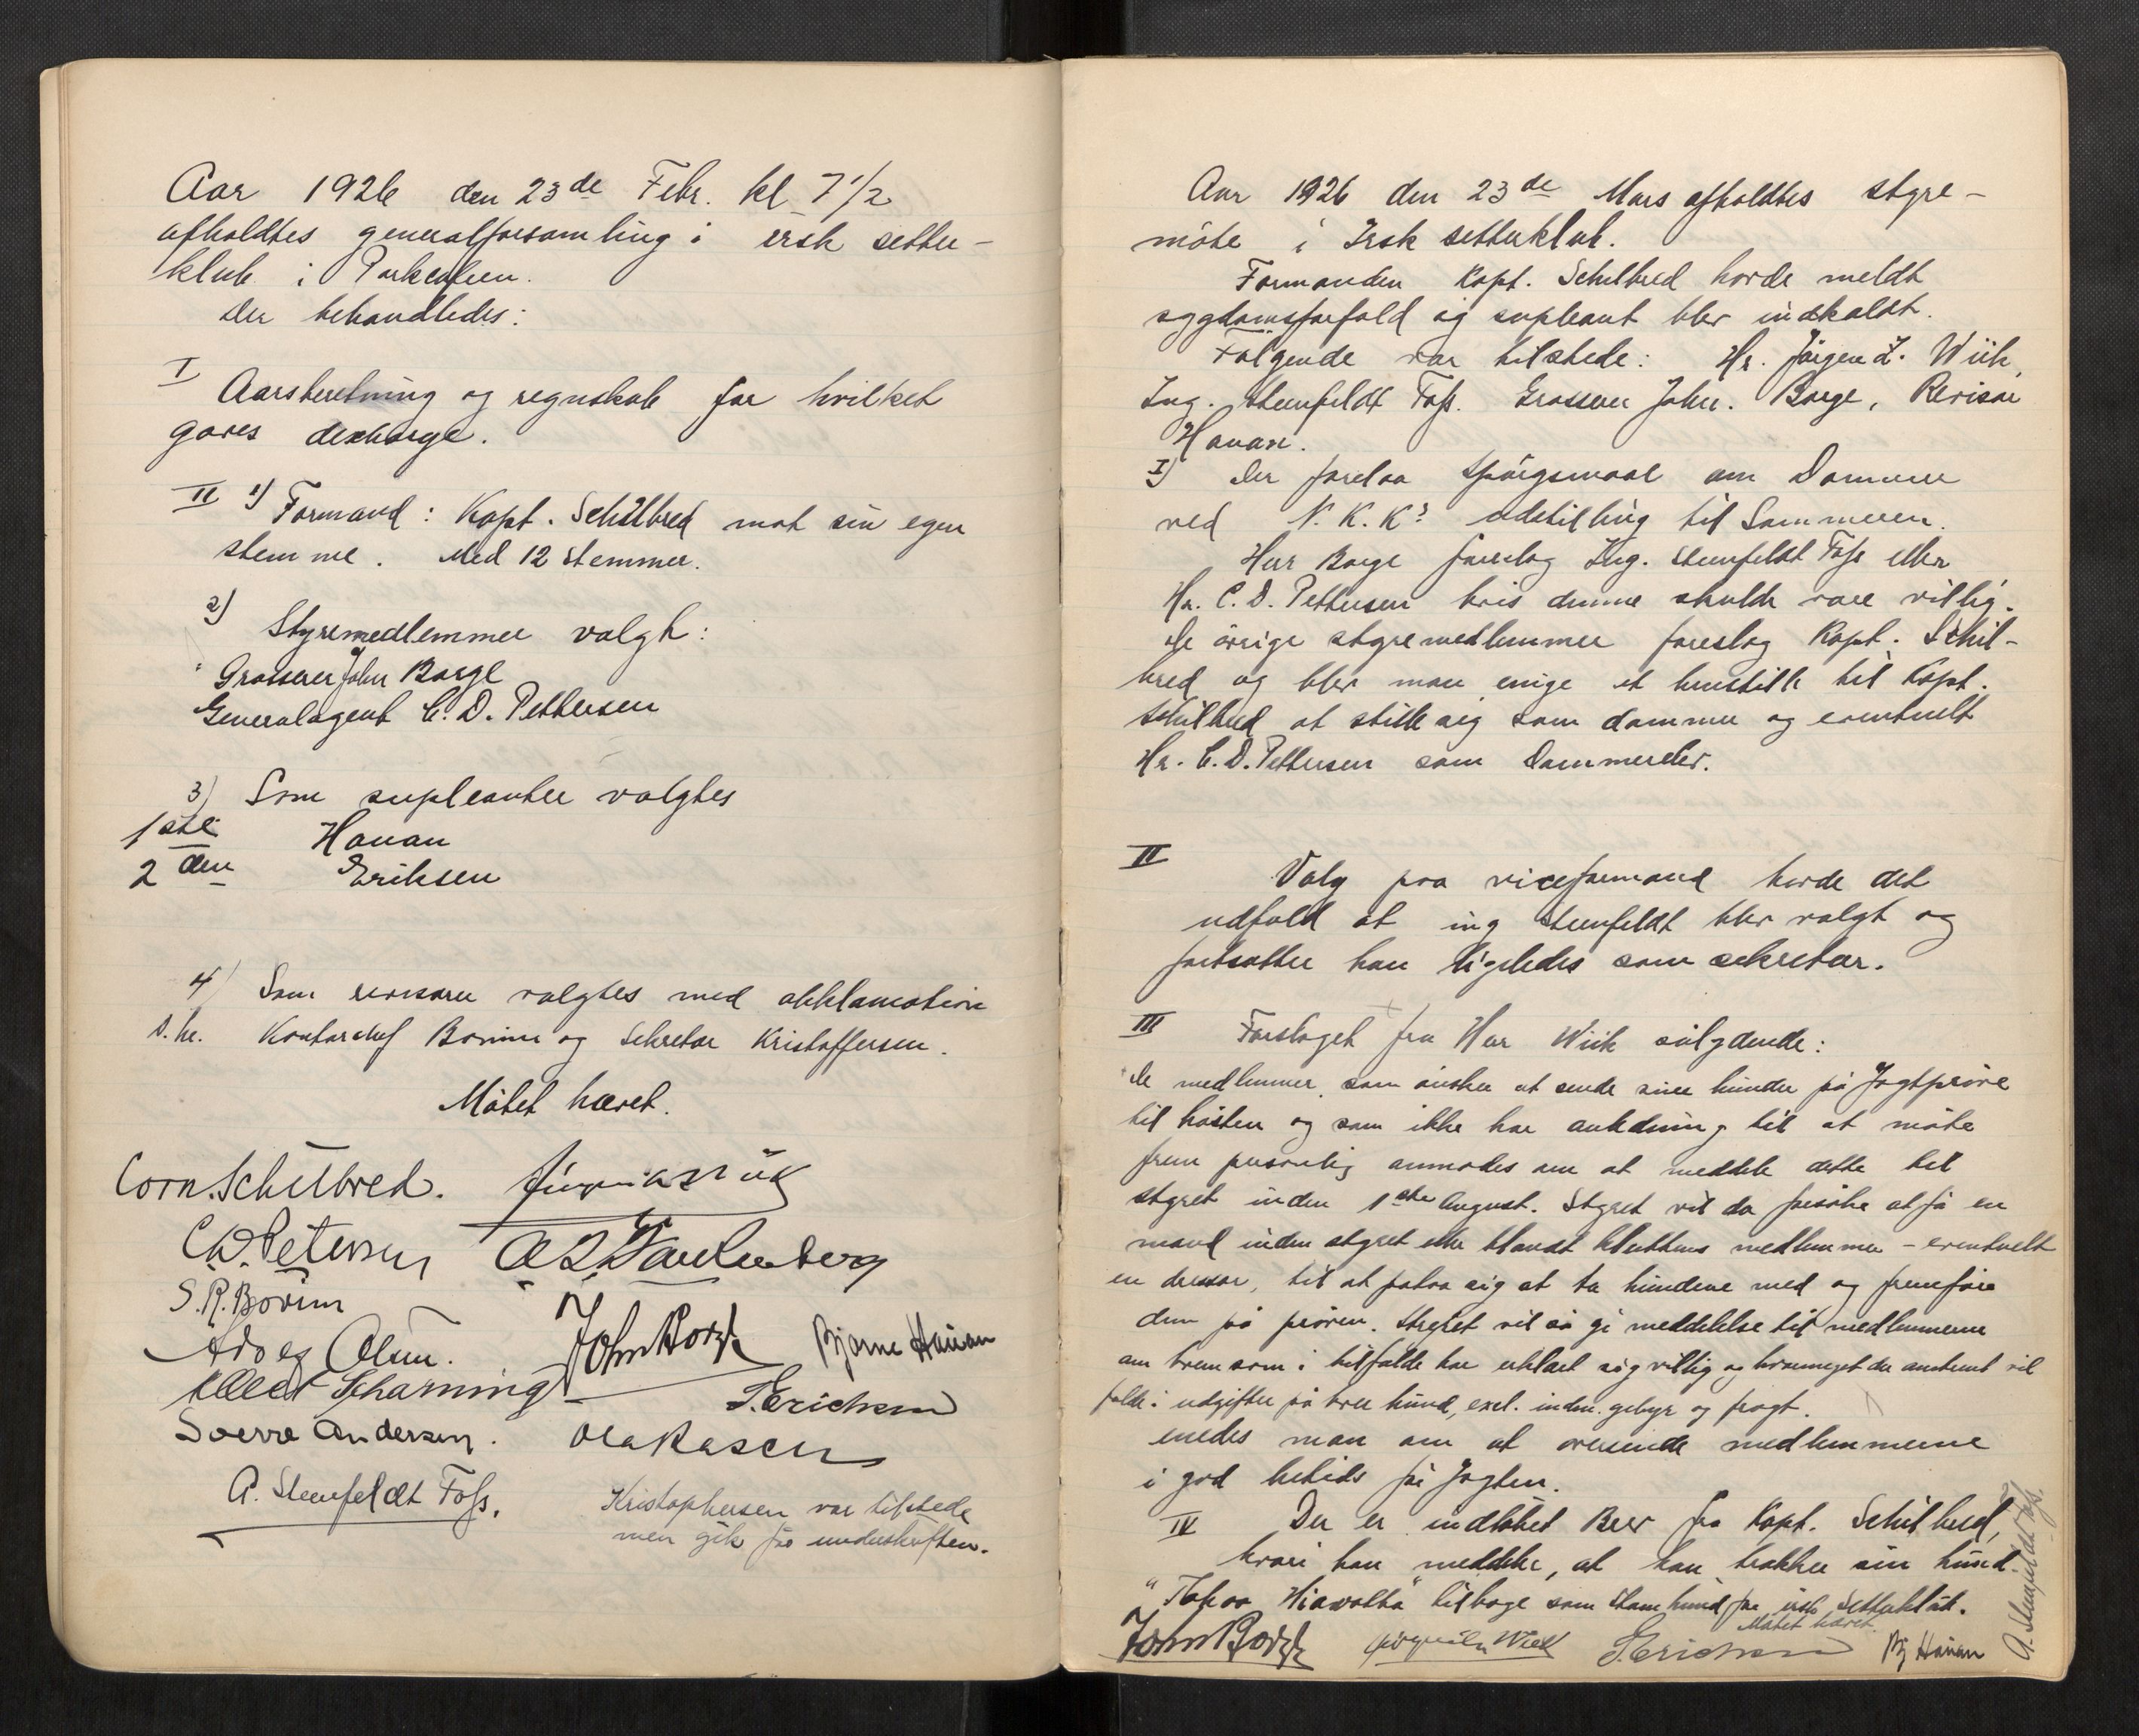 Aar 1926 den 23de Febr. kl 7 1/2
afholdtes generalforsamling i irsk setter-
klub i Parkcafeen.
Der behandledes:
I Aarsberetning og regnskab for hvilket
gaves decharge.
II 1) Formand: Kapt. Schilbred mot sin egen
stemme. Med 12 stemmer.
2) Styremedlemmer valgh:
Grosserer John Borge
Generalagent C. D. Pettersen
3) Som supleanter valgtes
1ste Hauan
2den Eriksen
4) Som revisorer valgtes med akklamation
d. hr. Kontorchef Bovim og Sekretær Kristoffersen.
Mötet hævet.
Corn. Schilbred.
C.D. Petersen
S. R. Bovim
Olsen.
Scharning
John Borge
Bjarne Hauan
S. Erichsen
Sverre Andersen.
A. Steenfeldt Foss.
Kristophersen var tilstede
men gik før underskriften.
Aar 1926 den 23de Mars afholdtes styre-
möte i Irsk setterklub.
Formanden Kapt. Schilbred havde meldt
sygdomsforfald og supleant blev indkaldt.
Følgende var tilstede: Hr. Jörgen L. Wiik,
Ing. Steenfeldt Foss. Grosserer John. Borge, Revisor
Hauan.
I) Der forelaa Spörgsmaal om Dommer
ved N. K. K's udstilling til Sommeren.
Herr Borge foreslog Ing. Steenfeldt Foss eller
Hr. C. D. Pettersen hvis denne skulde være villig.
De övrige styremedlemmer foreslog Kapt. Schil-
bred og blev man enige at henstille til Kapt.
Schilbred at stille sig som dommer og eventuelt
Hr. C. D. Pettersen som Dommerelev.
II Valg paa viceformand havde det
udfald at ing Steenfeldt blev valgt og
fortsætter han ligeledes som sekretær.
III Forslaget fra Herr Wiik sålydende:
De medlemmer som önsker at sende sine hunder på Jagtpröve
til hösten og som ikke har anledning til at möte
frem personlig anmodes om at meddele dette til
styret inden 1ste August. Styret vil da forsöke at få en
mand inden styret eller blandt klubbens medlemmer - eventuelt
en dressør, til at påtaa sig at ta hundene med og fremföre
dem på pröven. Styret vil så gi meddelelse til medlemmerne
om hvem som i tilfælde har erklært sig villig og hvormeget der omtrent vil
falde i udgifter på hver hund, excl. indm. gebyr og fragt.
enedes man om at oversende medlemmerne
i god betids för Jagten.
IV Der er indløbet Brev fra Kapt. Schilbred,
hvori han meddeler, at han trækker sin hund.
" Hiawatha" tilbage som Stamhund for irsk Setterklub.
Mötet hævet.
John Borge Jörgen L. Wiik S. Erichsen Bj Hauan
A. Steenfeldt Foss.